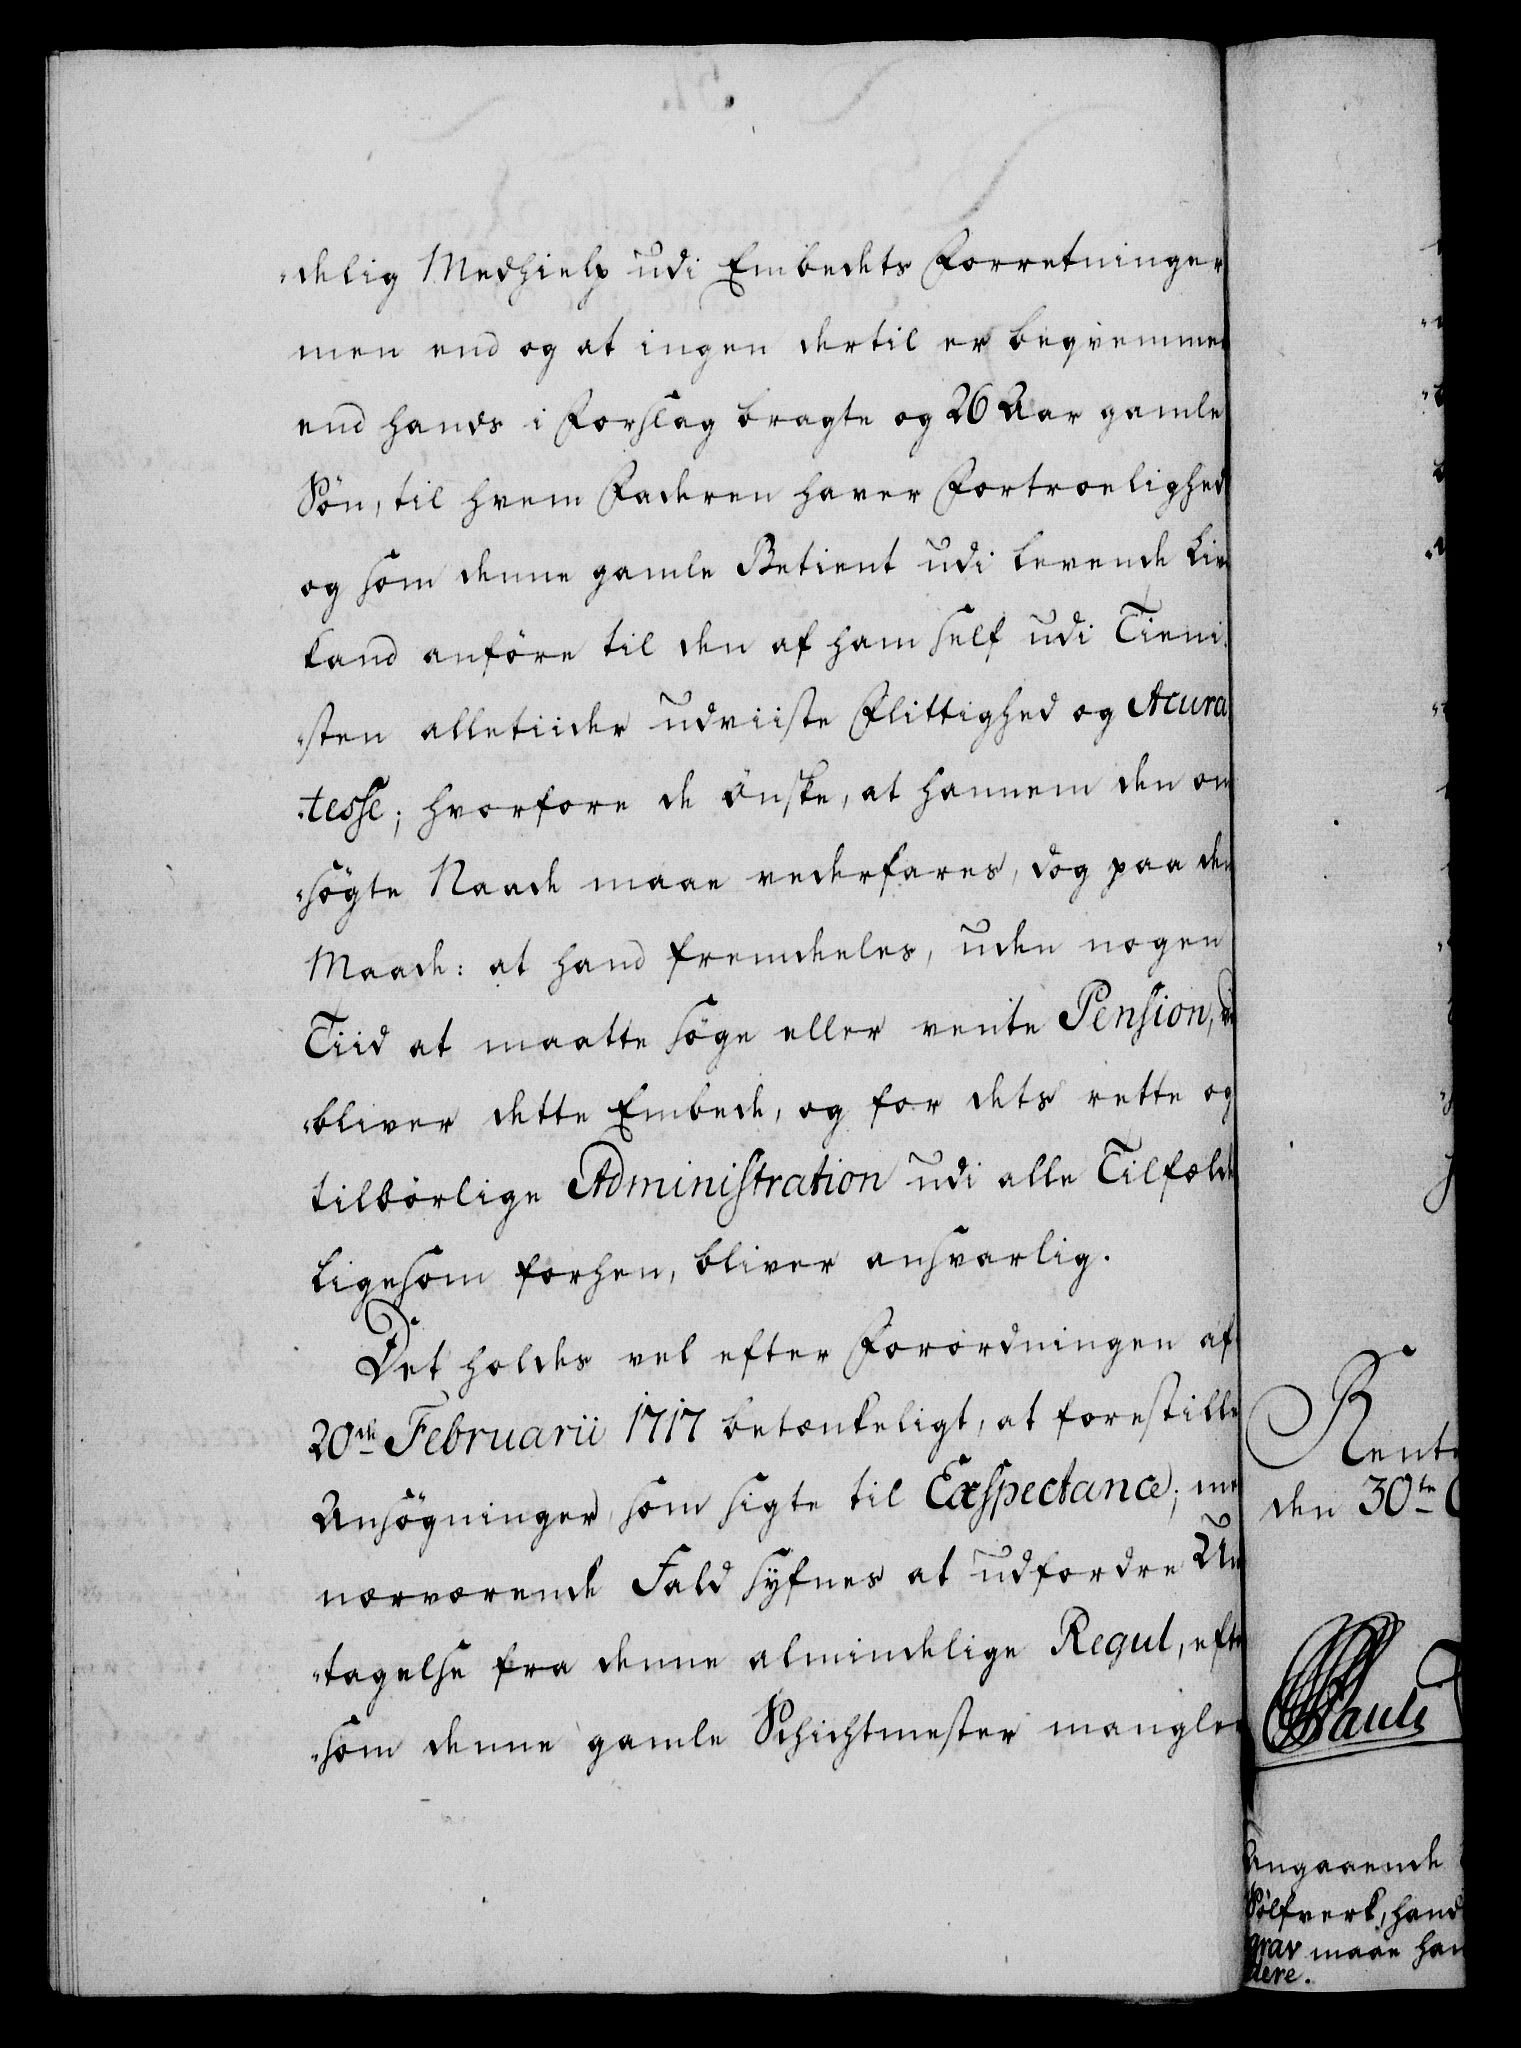 delig Medhielp udi Embedets Forretninger
men end og at ingen dertil er beqvemmer
end hands i Forslag bragte og 26 Aar gamle
Sön, til hvem Faderen haver Fortroelighed
og som denne gamle Betient udi levende Liv
kand anföre til den af ham self udi Tieni-
sten alletiider udviiste Flittighed og Acura
tesse; hvorfore de önske, at hannem den on
sögte Naade maae vederfares, dog paa den
Maade: at hand fremdeeles, uden nogen
Tiid at maatte söge eller vente Pension,
bliver dette Embede, og for dets rette og
tilbörlige Administration udi alle Tilfælde
ligesom forhen, bliver ansvarlig.
Det holdes vel efter Forordningen af
20de Februarii 1717 betænkeligt, at forestille
Ansögninger, som sigte til Exspectance;
nærværende Fald synes at udfordre Un
tagelse fra denne almindelige Regul, efter
som denne gamle Schichtmester mangler
Rente
den 30te
Pauli
Angaaende
Sölfverk, hand
grav maae han
dere.